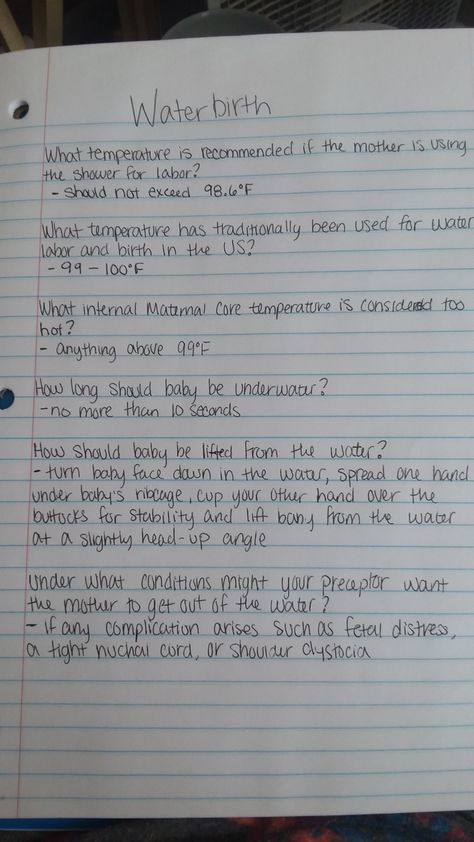 Waterbirth
What temperature is recommended if the mother is using
the shower for labor?
- should not exceed 98.6°F
What temperature has traditionally been used for water
labor and birth in the US?
- 99-100°F
What internal Maternal core temperature is considered too
hot?
- anything above 99°F
How long should baby be underwater?
- no more than 10 seconds
How should baby be lifted from the water?
- turn baby face down in the water, spread one hand
under baby's ribcage, cup your other hand over the
buttocks for stability and lift bany from the water
at a slightly head-up angle
Under what conditions might your preceptor want
the mother to get out of the water?
- if any complication arises such as fetal distress,
a tight nuchal cord, or shoulder dystocia